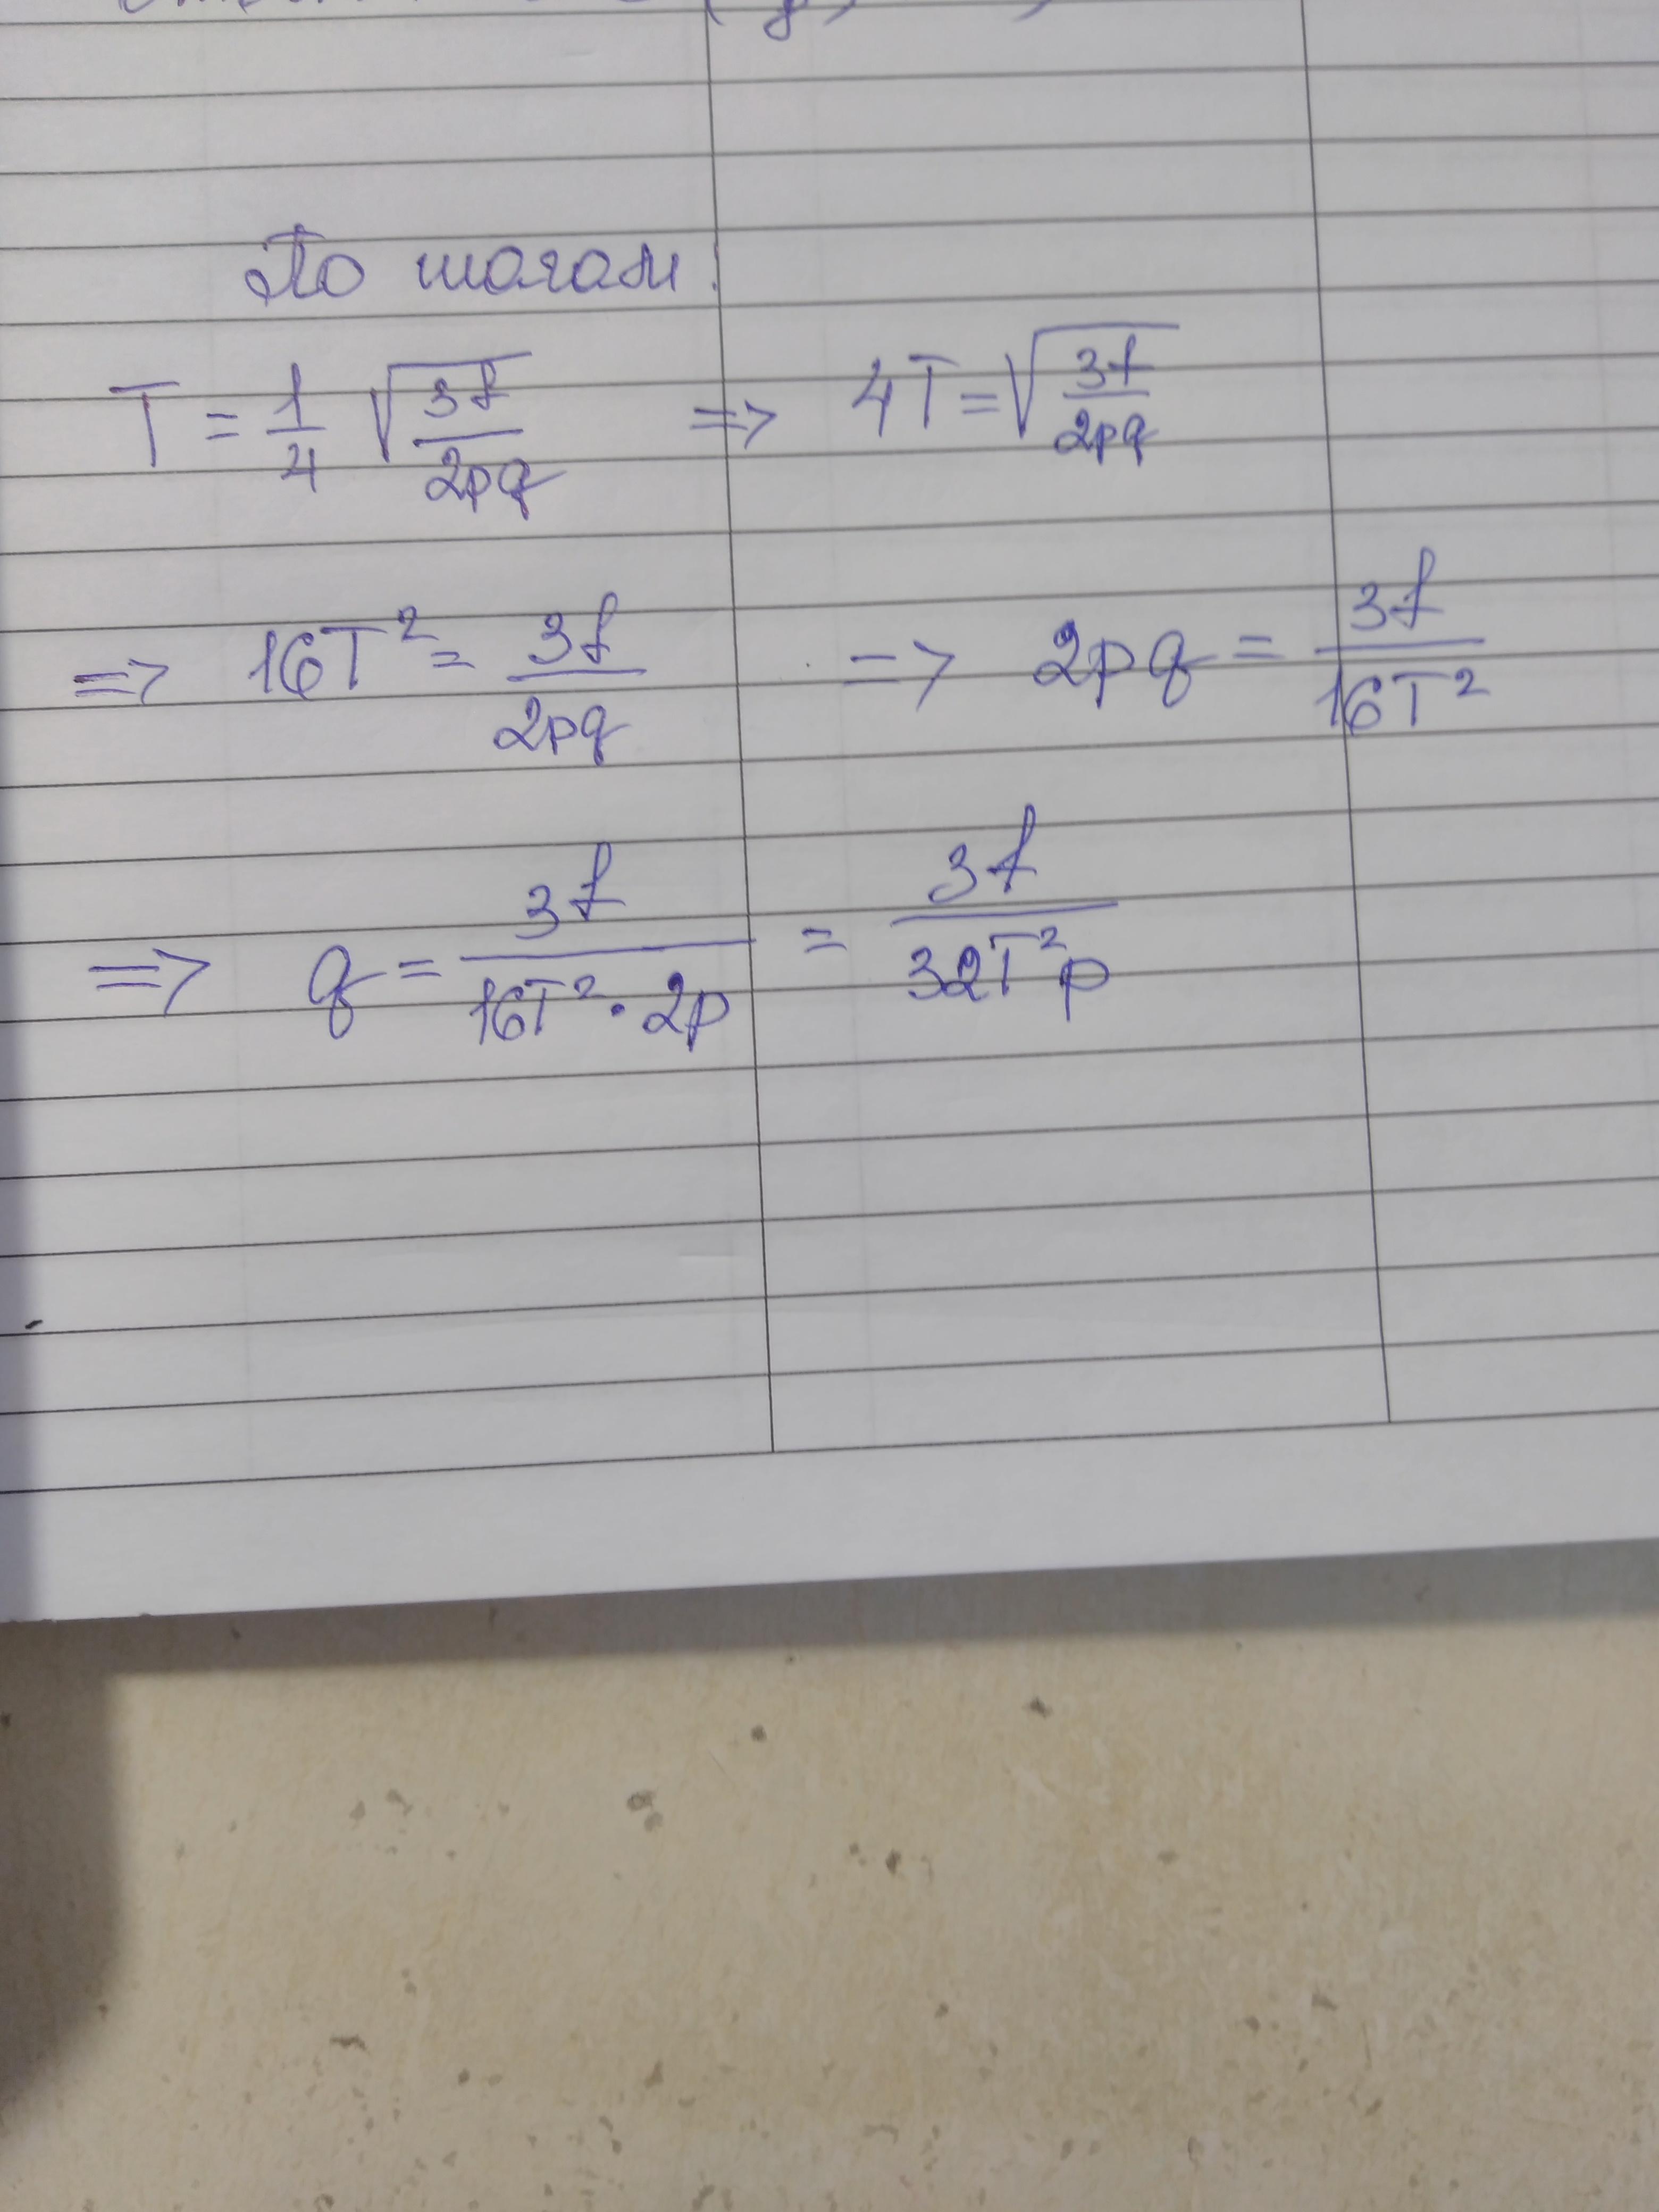 По шагам:
T = 1/4 √(3f/2pq) => 4T = √(3f/2pq)
=> 16T² = 3f/2pq => 2pq = 3f/16T²
=> q = 3f/(16T² · 2p) = 3f/(32T²p)